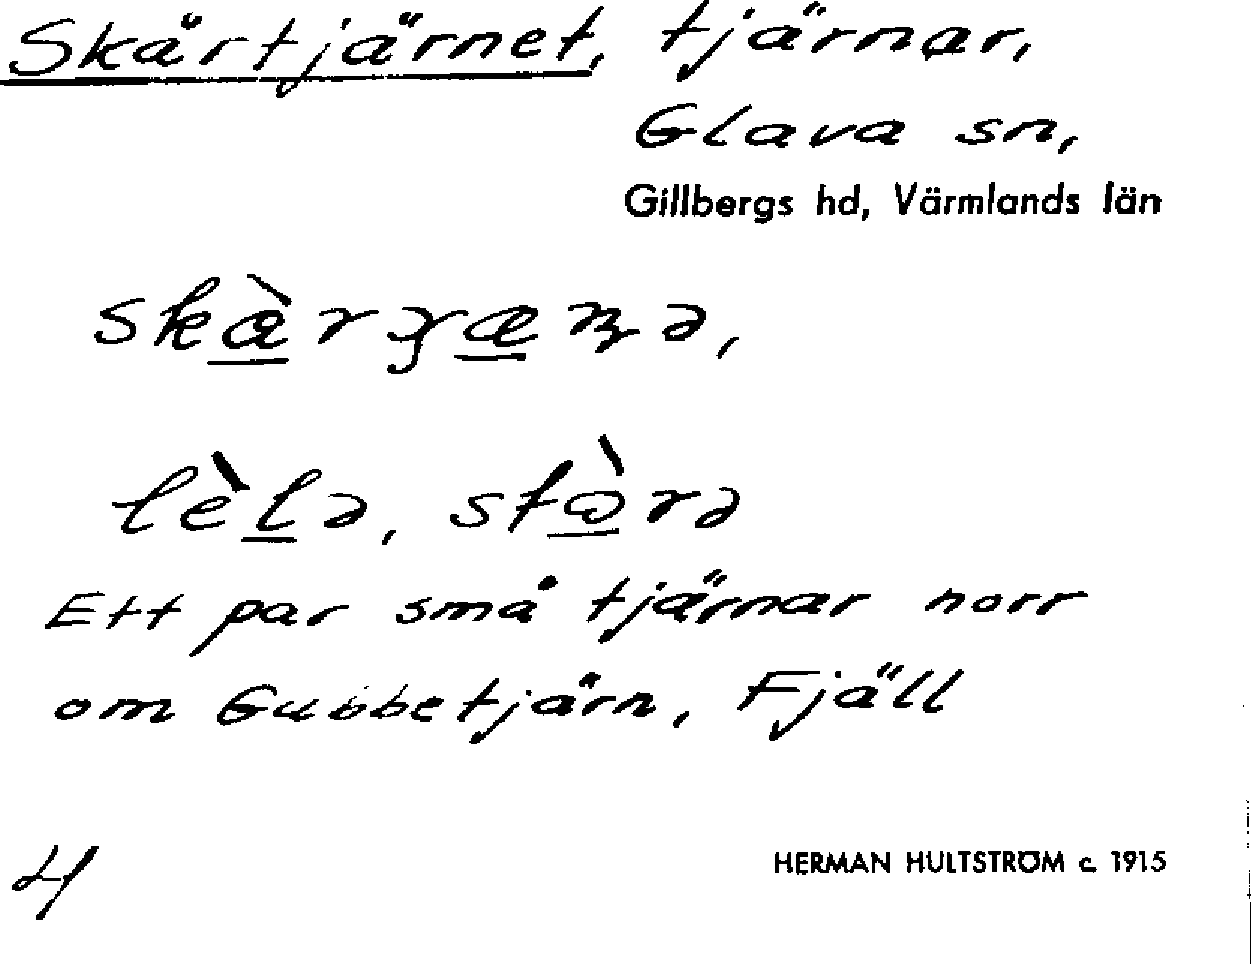 Skårtjärnet, tjärnar,
Glava sn,
Gillbergs hd, Värmlands län
lèlə, stòrə
Ett par små tjärnar norr
om Gubbetjärn, Fjäll
4
HERMAN HULTSTRÖM c. 1915